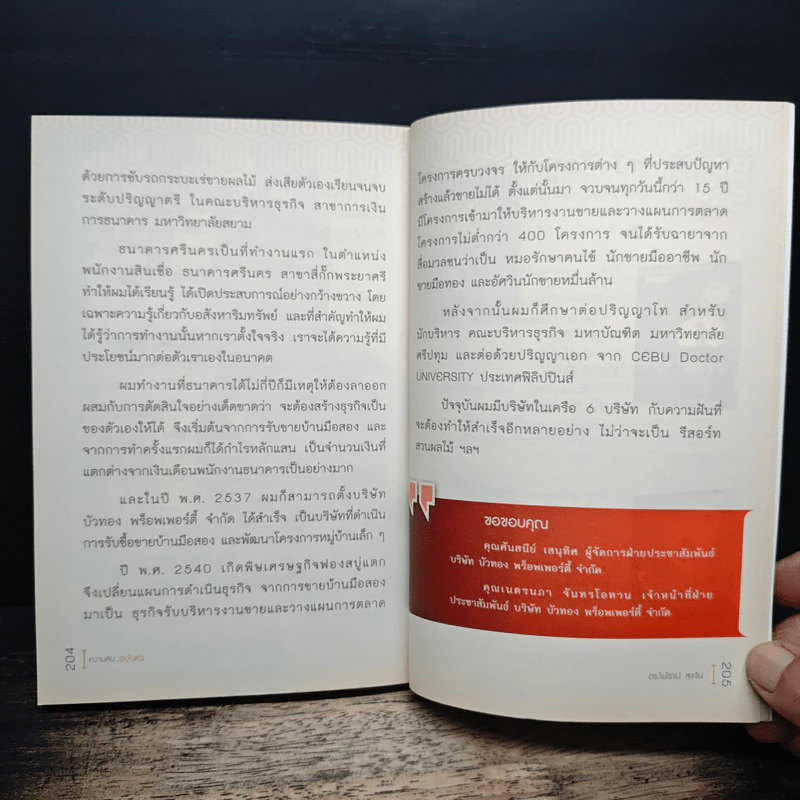 ด้วยการขับรถกระบะเร่ขายผลไม้ ส่งเสียตัวเองเรียนจนจบ
ระดับปริญญาตรี ในคณะบริหารธุรกิจ สาขาการเงิน
การธนาคาร มหาวิทยาลัยสยาม
ธนาคารศรีนครเป็นที่ทำงานแรก ในตำแหน่ง
พนักงานสินเชื่อ ธนาคารศรีนคร สาขาสี่กั๊กพระยาศรี
ทำให้ผมได้เรียนรู้ ได้เปิดประสบการณ์อย่างกว้างขวาง โดย
เฉพาะความรู้เกี่ยวกับอสังหาริมทรัพย์ และที่สำคัญทำให้ผม
ได้รู้ว่าการทำงานนั้นหากเราตั้งใจจริง เราจะได้ความรู้ที่มี
ประโยชน์มากต่อตัวเราเองในอนาคต
ผมทำงานที่ธนาคารได้ไม่กี่ปีก็มีเหตุให้ต้องลาออก
ผสมกับการตัดสินใจอย่างเด็ดขาดว่า จะต้องสร้างธุรกิจเป็น
ของตัวเองให้ได้ จึงเริ่มต้นจากการรับขายบ้านมือสอง และ
จากการทำครั้งแรกผมก็ได้กำไรหลักแสน เป็นจำนวนเงินที่
แตกต่างจากเงินเดือนพนักงานธนาคารเป็นอย่างมาก
และในปี พ.ศ. 2537 ผมก็สามารถตั้งบริษัท
บัวทอง พร็อพเพอร์ตี้ จำกัด ได้สำเร็จ เป็นบริษัทที่ดำเนิน
การรับซื้อขายบ้านมือสอง และพัฒนาโครงการหมู่บ้านเล็ก ๆ
ปี พ.ศ. 2540 เกิดพิษเศรษฐกิจฟองสบู่แตก
จึงเปลี่ยนแผนการดำเนินธุรกิจ จากการขายบ้านมือสอง
มาเป็น ธุรกิจรับบริหารงานขายและวางแผนการตลาด
204
โครงการครบวงจร ให้กับโครงการต่าง ๆ ที่ประสบปัญหา
สร้างแล้วขายไม่ได้ ตั้งแต่นั้นมา จวบจนทุกวันนี้กว่า 15 ปี
มีโครงการเข้ามาให้บริหารงานขายและวางแผนการตลาด
โครงการไม่ต่ำกว่า 400 โครงการ จนได้รับฉายาจาก
สื่อมวลชนว่าเป็น หมอรักษาคนไข้ นักขายมืออาชีพ นัก
ขายมือทอง และอัศวินนักขายหมื่นล้าน
หลังจากนั้นผมก็ศึกษาต่อปริญญาโท สำหรับ
นักบริหาร คณะบริหารธุรกิจ มหาบัณฑิต มหาวิทยาลัย
ศรีปทุม และต่อด้วยปริญญาเอก จาก CEBU Doctor
UNIVERSITY ประเทศฟิลิปปินส์
ปัจจุบันผมมีบริษัทในเครือ 6 บริษัท กับความฝันที่
จะต้องทำให้สำเร็จอีกหลายอย่าง ไม่ว่าจะเป็น รีสอร์ท
สวนผลไม้ ฯลฯ
ขอขอบคุณ
คุณศันสนีย์ เสนุทิศ ผู้จัดการฝ่ายประชาสัมพันธ์
บริษัท บัวทอง พร็อพเพอร์ตี้ จำกัด
คุณเนตรนภา จันทรโอทาน เจ้าหน้าที่ฝ่าย
ประชาสัมพันธ์ บริษัท บัวทอง พร็อพเพอร์ตี้ จำกัด
205